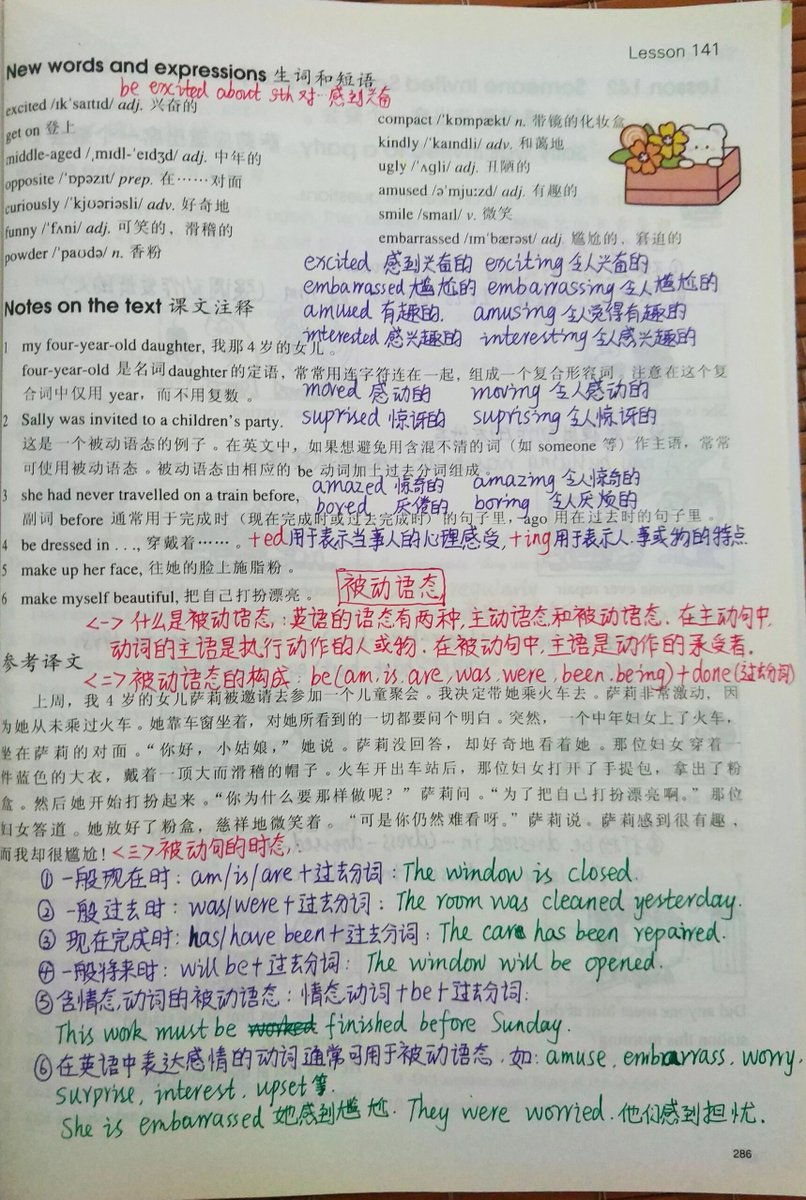 Lesson 141
New words and expressions 生词和短语
be excited about sth 对…感到兴奋
excited /ɪkˈsaɪtɪd/ adj. 兴奋的
get on 登上
middle-aged /ˌmɪdl-ˈeɪdʒd/ adj. 中年的
opposite /ˈɒpəzɪt/ prep. 在……对面
curiously /ˈkjʊəriəsli/ adv. 好奇地
funny /ˈfʌni/ adj. 可笑的，滑稽的
powder /ˈpaʊdə/ n. 香粉
compact /ˈkɒmpækt/ n. 带镜的化妆盒
kindly /ˈkaɪndli/ adv. 和蔼地
ugly /ˈʌgli/ adj. 丑陋的
amused /əˈmjuːzd/ adj. 有趣的
smile /smaɪl/ v. 微笑
embarrassed /ɪmˈbærəst/ adj. 尴尬的，窘迫的
excited 感到兴奋的 exciting 令人兴奋的
embarrassed 尴尬的 embarrassing 令人尴尬的
amused 有趣的. amusing 令人觉得有趣的
interested 感兴趣的 interesting 令人感兴趣的
Notes on the text 课文注释
1 my four-year-old daughter, 我那4岁的女儿。
four-year-old 是名词daughter的定语，常常用连字符连在一起，组成一个复合形容词。注意在这个复
合词中仅用 year，而不用复数。
moved 感动的 moving 令人感动的
2 Sally was invited to a children's party.
suprised 惊讶的 suprising 令人惊讶的
这是一个被动语态的例子。在英文中，如果想避免用含混不清的词（如 someone 等）作主语，常常
可使用被动语态。被动语态由相应的 be 动词加上过去分词组成。
3 she had never travelled on a train before,
amazed 惊奇的 amazing 令人惊奇的
bored 厌倦的 boring 令人厌烦的
副词 before 通常用于完成时（现在完成时或过去完成时）的句子里，ago 用在过去时的句子里。
4 be dressed in . . ., 穿戴着……。
+ed用于表示当事人的心理感受,+ing用于表示人.事或物的特点
5 make up her face, 往她的脸上施脂粉。
6 make myself beautiful, 把自己打扮漂亮。
被动语态
<一> 什么是被动语态,: 英语的语态有两种,主动语态和被动语态. 在主动句中,
动词的主语是执行动作的人或物. 在被动句中,主语是动作的承受者.
参考译文
<二> 被动语态的构成: be(am.is.are,was.were,been.being)+done(过去分词)
上周，我 4 岁的女儿萨莉被邀请去参加一个儿童聚会。我决定带她乘火车去。萨莉非常激动，因
为她从未乘过火车。她靠车窗坐着，对她所看到的一切都要问个明白。突然，一个中年妇女上了火车，
坐在萨莉的对面。“你好，小姑娘，”她说。萨莉没回答，却好奇地看着她。那位妇女穿着一
件蓝色的大衣，戴着一顶大而滑稽的帽子。火车开出车站后，那位妇女打开了手提包，拿出了粉
盒。然后她开始打扮起来。“你为什么要那样做呢？”萨莉问。“为了把自己打扮漂亮啊。”那位
妇女答道。她放好了粉盒，慈祥地微笑着。“可是你仍然难看呀。”萨莉说。萨莉感到很有趣，
而我却很尴尬！
<三> 被动句的时态,:
① 一般现在时: am/is/are+过去分词: The window is closed.
② 一般过去时: was/were+过去分词: The room was cleaned yesterday.
③ 现在完成时: has/have been+过去分词: The car has been repaired.
④ 一般将来时: will be+过去分词: The window will be opened.
⑤ 含情态动词的被动语态: 情态动词+be+过去分词:
This work must be worked finished before Sunday.
⑥ 在英语中表达感情的动词通常可用于被动语态. 如: amuse, embarrass, worry,
surprise, interest, upset等.
She is embarrassed 她感到尴尬. They were worried. 他们感到担忧.
286